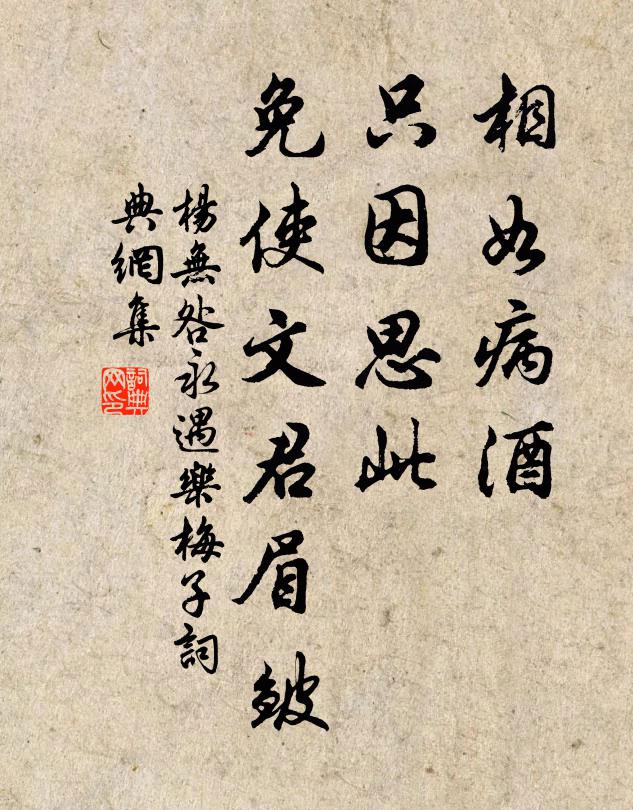 相如病酒
只因思此
免使文君眉皺
楊無咎永遇樂梅子詞
典網集
詞典
网印